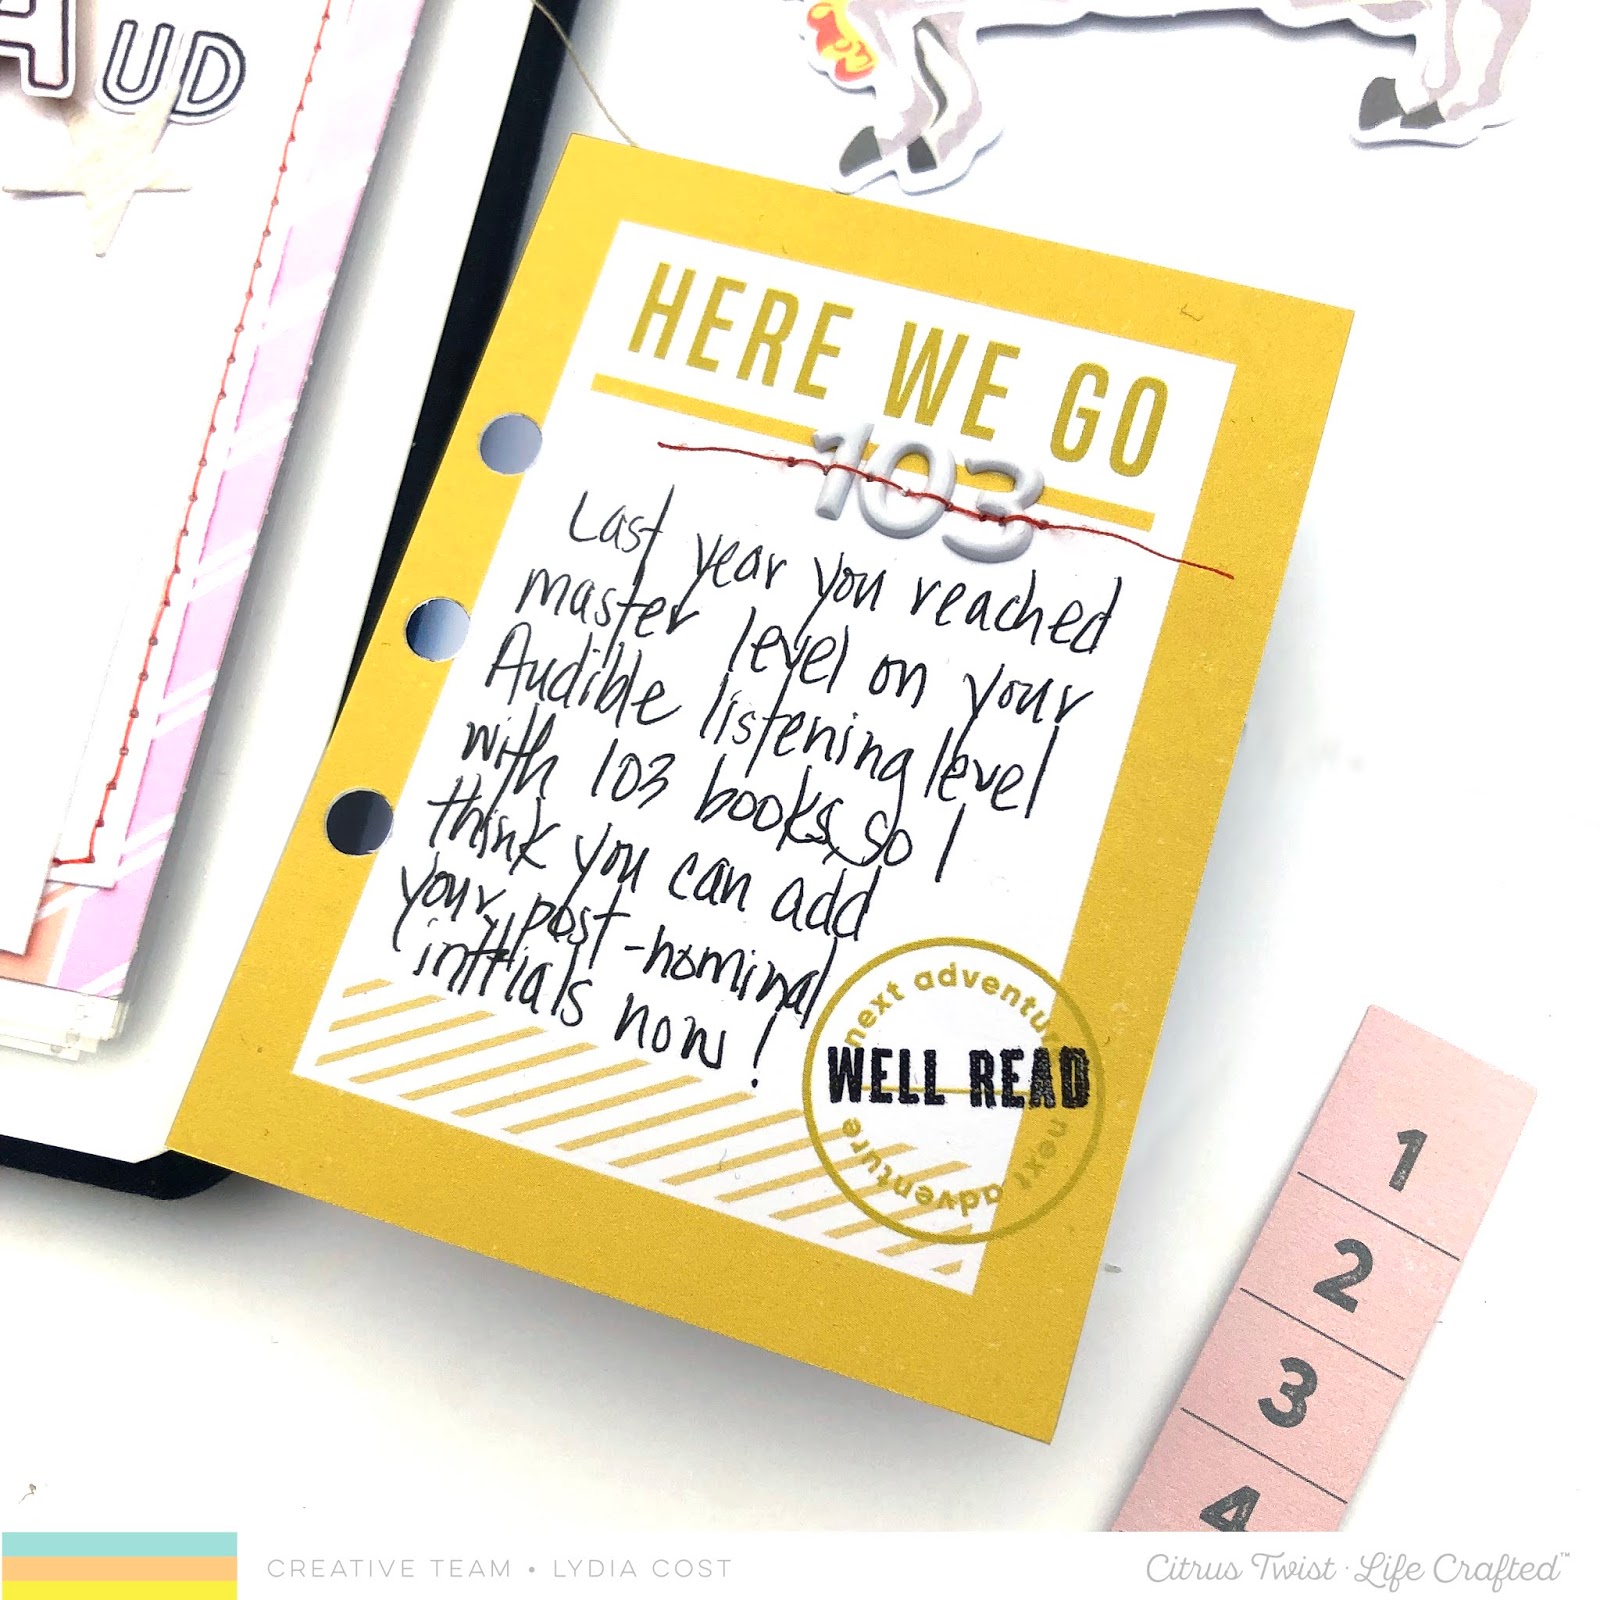 A
UD
HERE WE GO
103
Last year you reached
master level on your
Audible listening level
with 103 books, so I
think you can add
your post-nominal
initials now!
next adventure
WELL READ
next adventure
1
2
3
4
CREATIVE TEAM • LYDIA COST
Citrus Twist · Life Crafted™